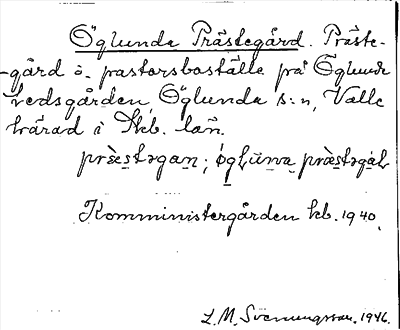 Öglunda Prästegård. Präste-
-gård o. pastorsboställe på Öglunda
Redsgården, Öglunda s:n, Valle
härad i Skb. län.
præ̀stəgan; øgḷūna præ̀stəgáḷ
Komministergården kb. 1940.
L. M. Svenungsson. 1946.